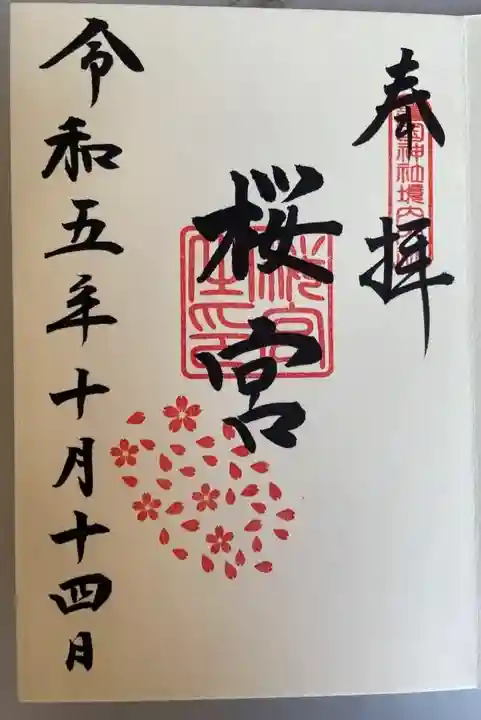 奉拝
国神社境内
桜宮
令和五年十月十四日